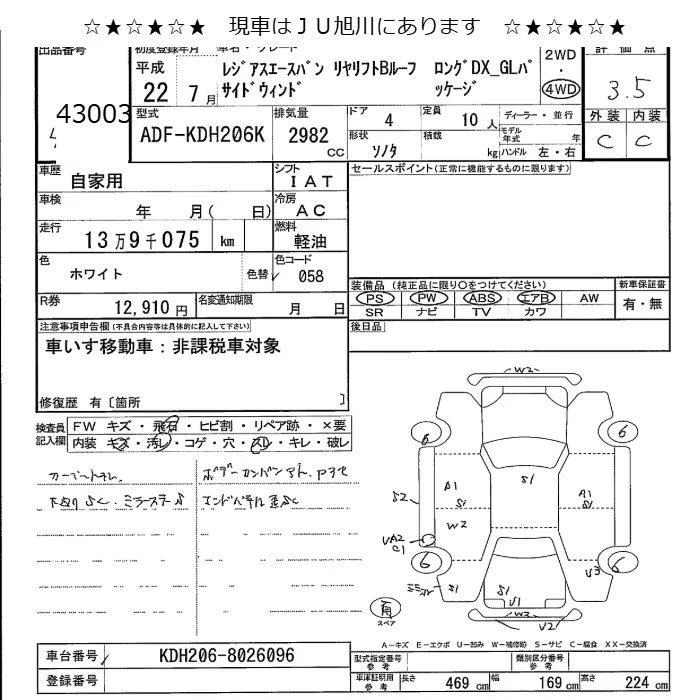 ☆★☆★☆★ 現車はJU旭川にあります ☆★☆★☆★
出品番号
43003
初度登録年月
平成
22 7月
車名・グレード
レジアスエースバン リヤリフトBルーフ ロングDX_GLパ
サイドウィンド ッケージ
2WD
・
4WD
評価点
3.5
外装 内装
C C
型式
ADF-KDH206K
排気量
2982
cc
ドア
4
定員
10 人
ディーラー・並行
モデル年式 年
形状
ソノタ
積載
kg
ハンドル 左・右
車歴
自家用
シフト
IAT
セールスポイント(正常に機能するものに限ります)
車検
年 月( 日)
冷房
AC
走行
13万9千075 km
燃料
軽油
色
ホワイト
色替
色コード
058
装備品 (純正品に限り〇をつけてください)
PS PW ABS エアB AW
SR ナビ TV カワ
新車保証書
有・無
R券
12,910 円
名変通知期限
月 日
後日品
注意事項申告欄(不具合内容等は具体的に記入して下さい)
車いす移動車:非課税車対象
修復歴 有〔箇所 〕
検査員
記入欄
FW キズ・飛石・ヒビ割・リペア跡・×要
内装 キズ・汚レ・コゲ・穴・スレ・キレ・破レ
W2
6 6
S1
A1 A1
S1 S1
S2
W2
UA2
C1
6 6
U3
S1 S1
U1
W3
U2
スペア
A-キズ E-エクボ U-凹み W-補修跡 S-サビ C-腐食 XX-交換済
車台番号
KDH206-8026096
登録番号
型式指定番号
参考
類別区分番号
参考
車庫証明用
参考
長さ 469 cm 幅 169 cm 高さ 224 cm